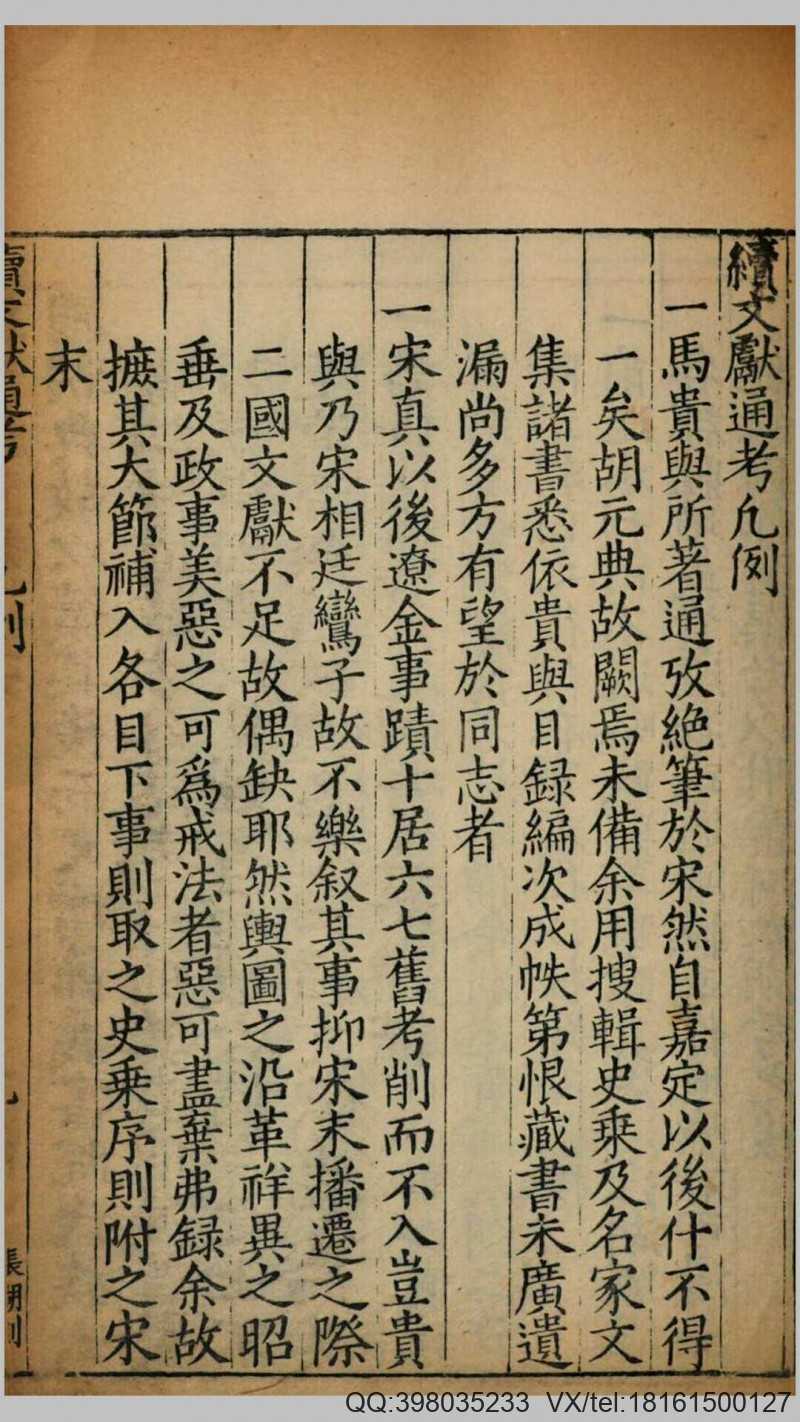 續文獻通考凡例
一馬貴與所著通攷絶筆於宋然自嘉定以後什不得
一矣胡元典故闕焉未備余用搜輯史乘及名家文
集諸書悉依貴與目録編次成帙第恨藏書未廣遺
漏尚多方有望於同志者
一宋真以後遼金事蹟十居六七舊考削而不入豈貴
與乃宋相廷鸞子故不樂叙其事抑宋末播遷之際
二國文獻不足故偶缺耶然輿圖之沿革祥異之昭
垂及政事美惡之可爲戒法者惡可盡棄弗録余故
摭其大節補入各目下事則取之史乘序則附之宋
末
QQ:398035233 VX/tel:18161500127